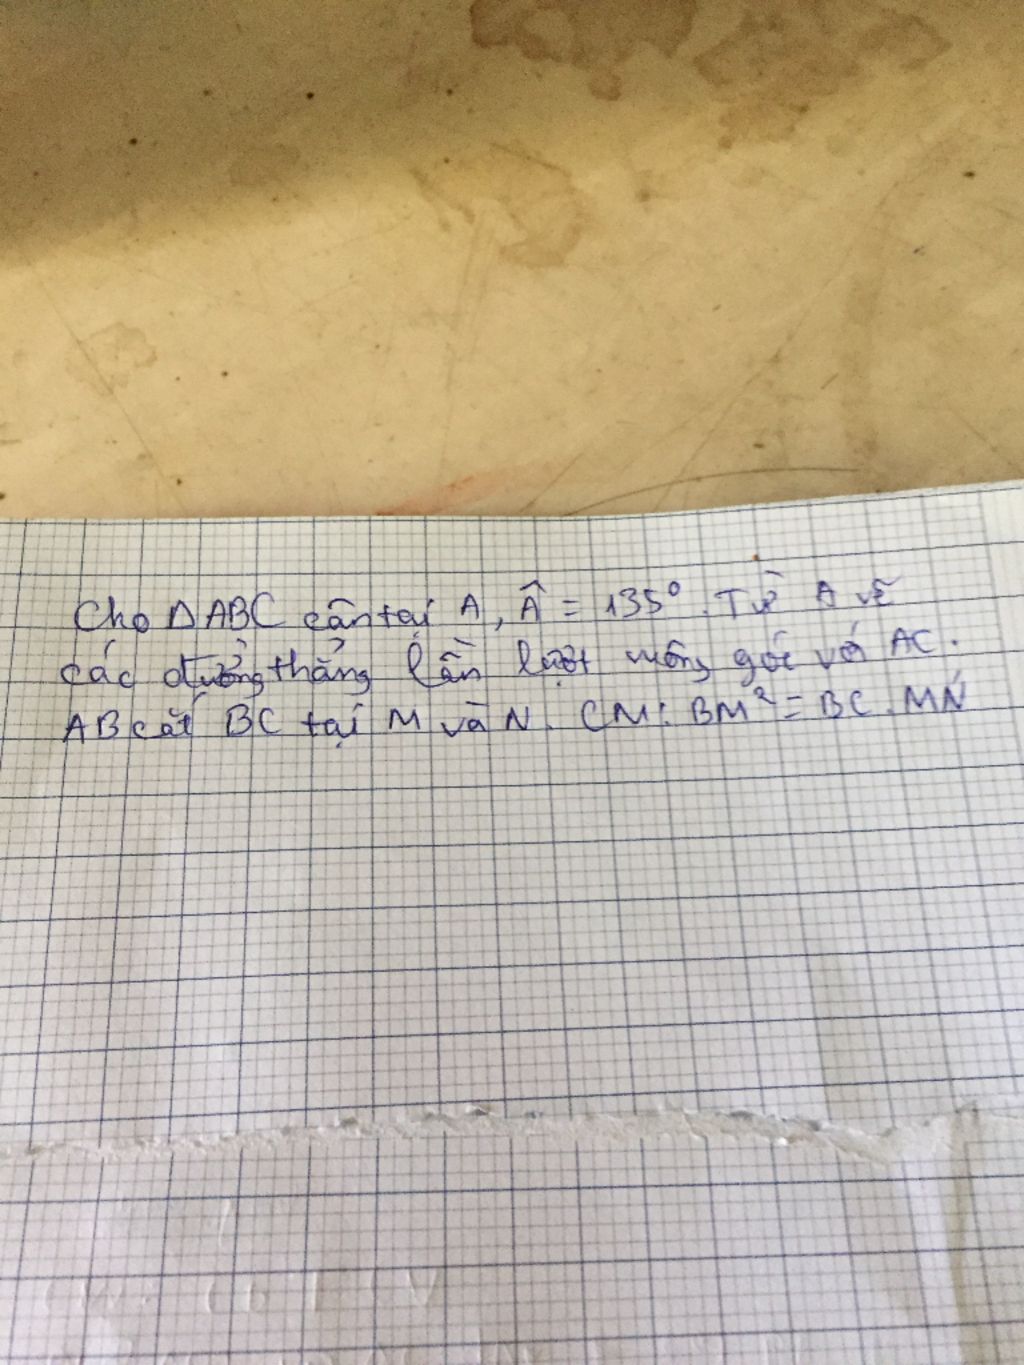 Cho ΔABC cân tại A, Â = 135°. Từ A vẽ
các đường thẳng lần lượt vuông góc với AC.
AB cắt BC tại M và N. CM: BM² = BC.MN